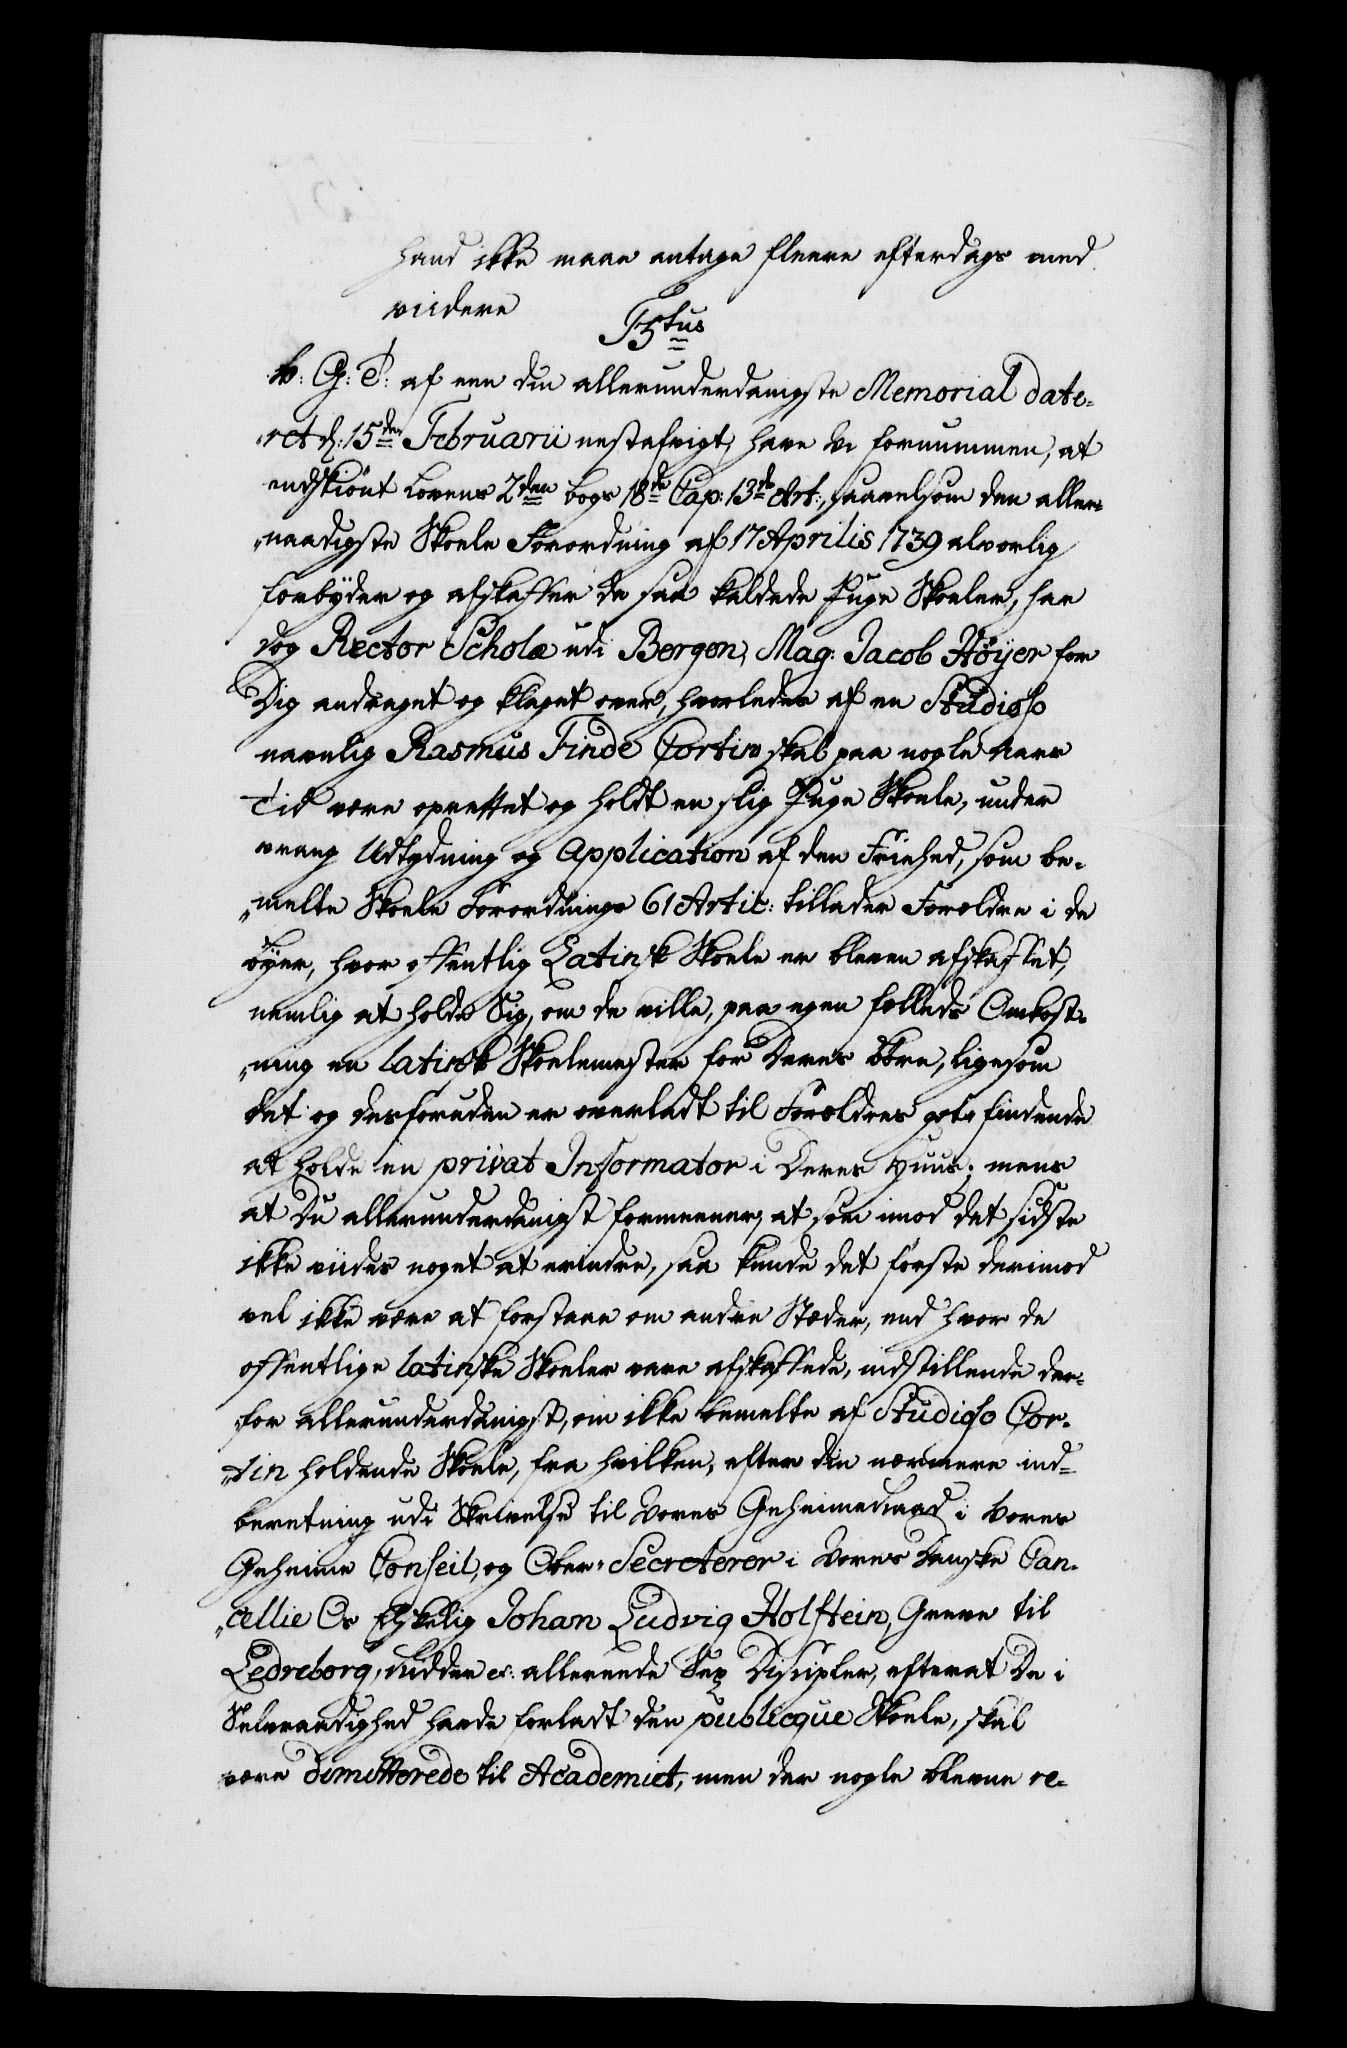 hand ikke maae antage fleere efterdags med
viidere
Tztus
W: G: T: af een din allerunderdanigste Memorial date-
„ret d: 15den Februarii nestafvigt, have Vi fornummen, at
endskiönt Lovens 2den bogs 18de Cap: 13de Art:, saavelsom den aller-
„naadigste Skoele Forordning af 17 Aprilis 1739 alvorlig
forbyder og afskaffer de saa kaldede Puge Skoeler, har
dog Rector Scholæ udi Bergen, Mag: Jacob Höÿer for
Dig andraget og klaget over, hvorledes af en Studioso
navnlig Rasmus Finde Cortin skal paa nogle Aars
Tid være oprettet og holdt en slig Puge Skoele, under
vrang Udtydning og Application af den Friehed, som be-
„melte Skoele Forordnings 61 Artic: tillader Forældre i de
Byer, hvor offentlig Latinsk Skoele er bleven afskaffet,
nemlig at holde Sig, om de ville, paa egen fælleds Omkost-
„ning en latinsk Skoelemester for Deres Börn, ligesom
det og desforuden er overladt til Forældres gotbefindende
at holde en privat Informator i Deres Huus; mens
at Du allerunderdanigst formeener, at som imod det sidste
ikke viides noget at erindre, saa kunde det förste derimod
vel ikke være at forstaae om andre Stæder, end hvor de
offentlige latinske Skoeler vare afskaffede, indstillende der-
„for allerunderdanigst, om ikke bemelte af Studioso Cor-
„tin holdende Skoele, fra hvilken, efter din nærmere ind-
beretning udi Skrivelse til Vores Geheimeraad i Vores
Geheime Conseil, og Ober-Secreterer i Vores Danske Can-
„cellie Os Elskelig Johan Ludvig Holstein, Greve til
Ledreborg, Ridder etc: allereede Sex Discipler, efterat De i
Selvraadighed havde forladt den publicque Skoele, skal
være dimitterede til Academiet, men der nogle blevne re-